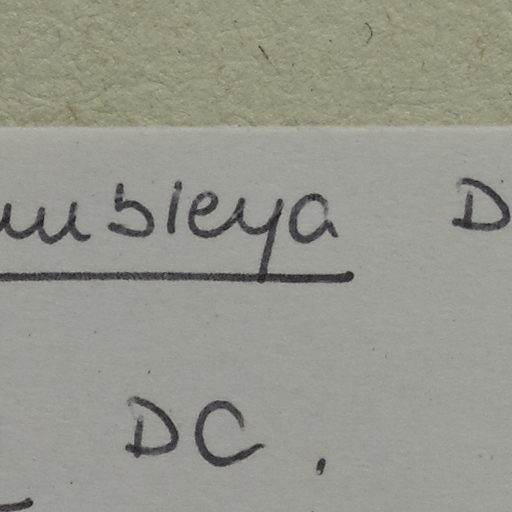 umbleya D
DC.